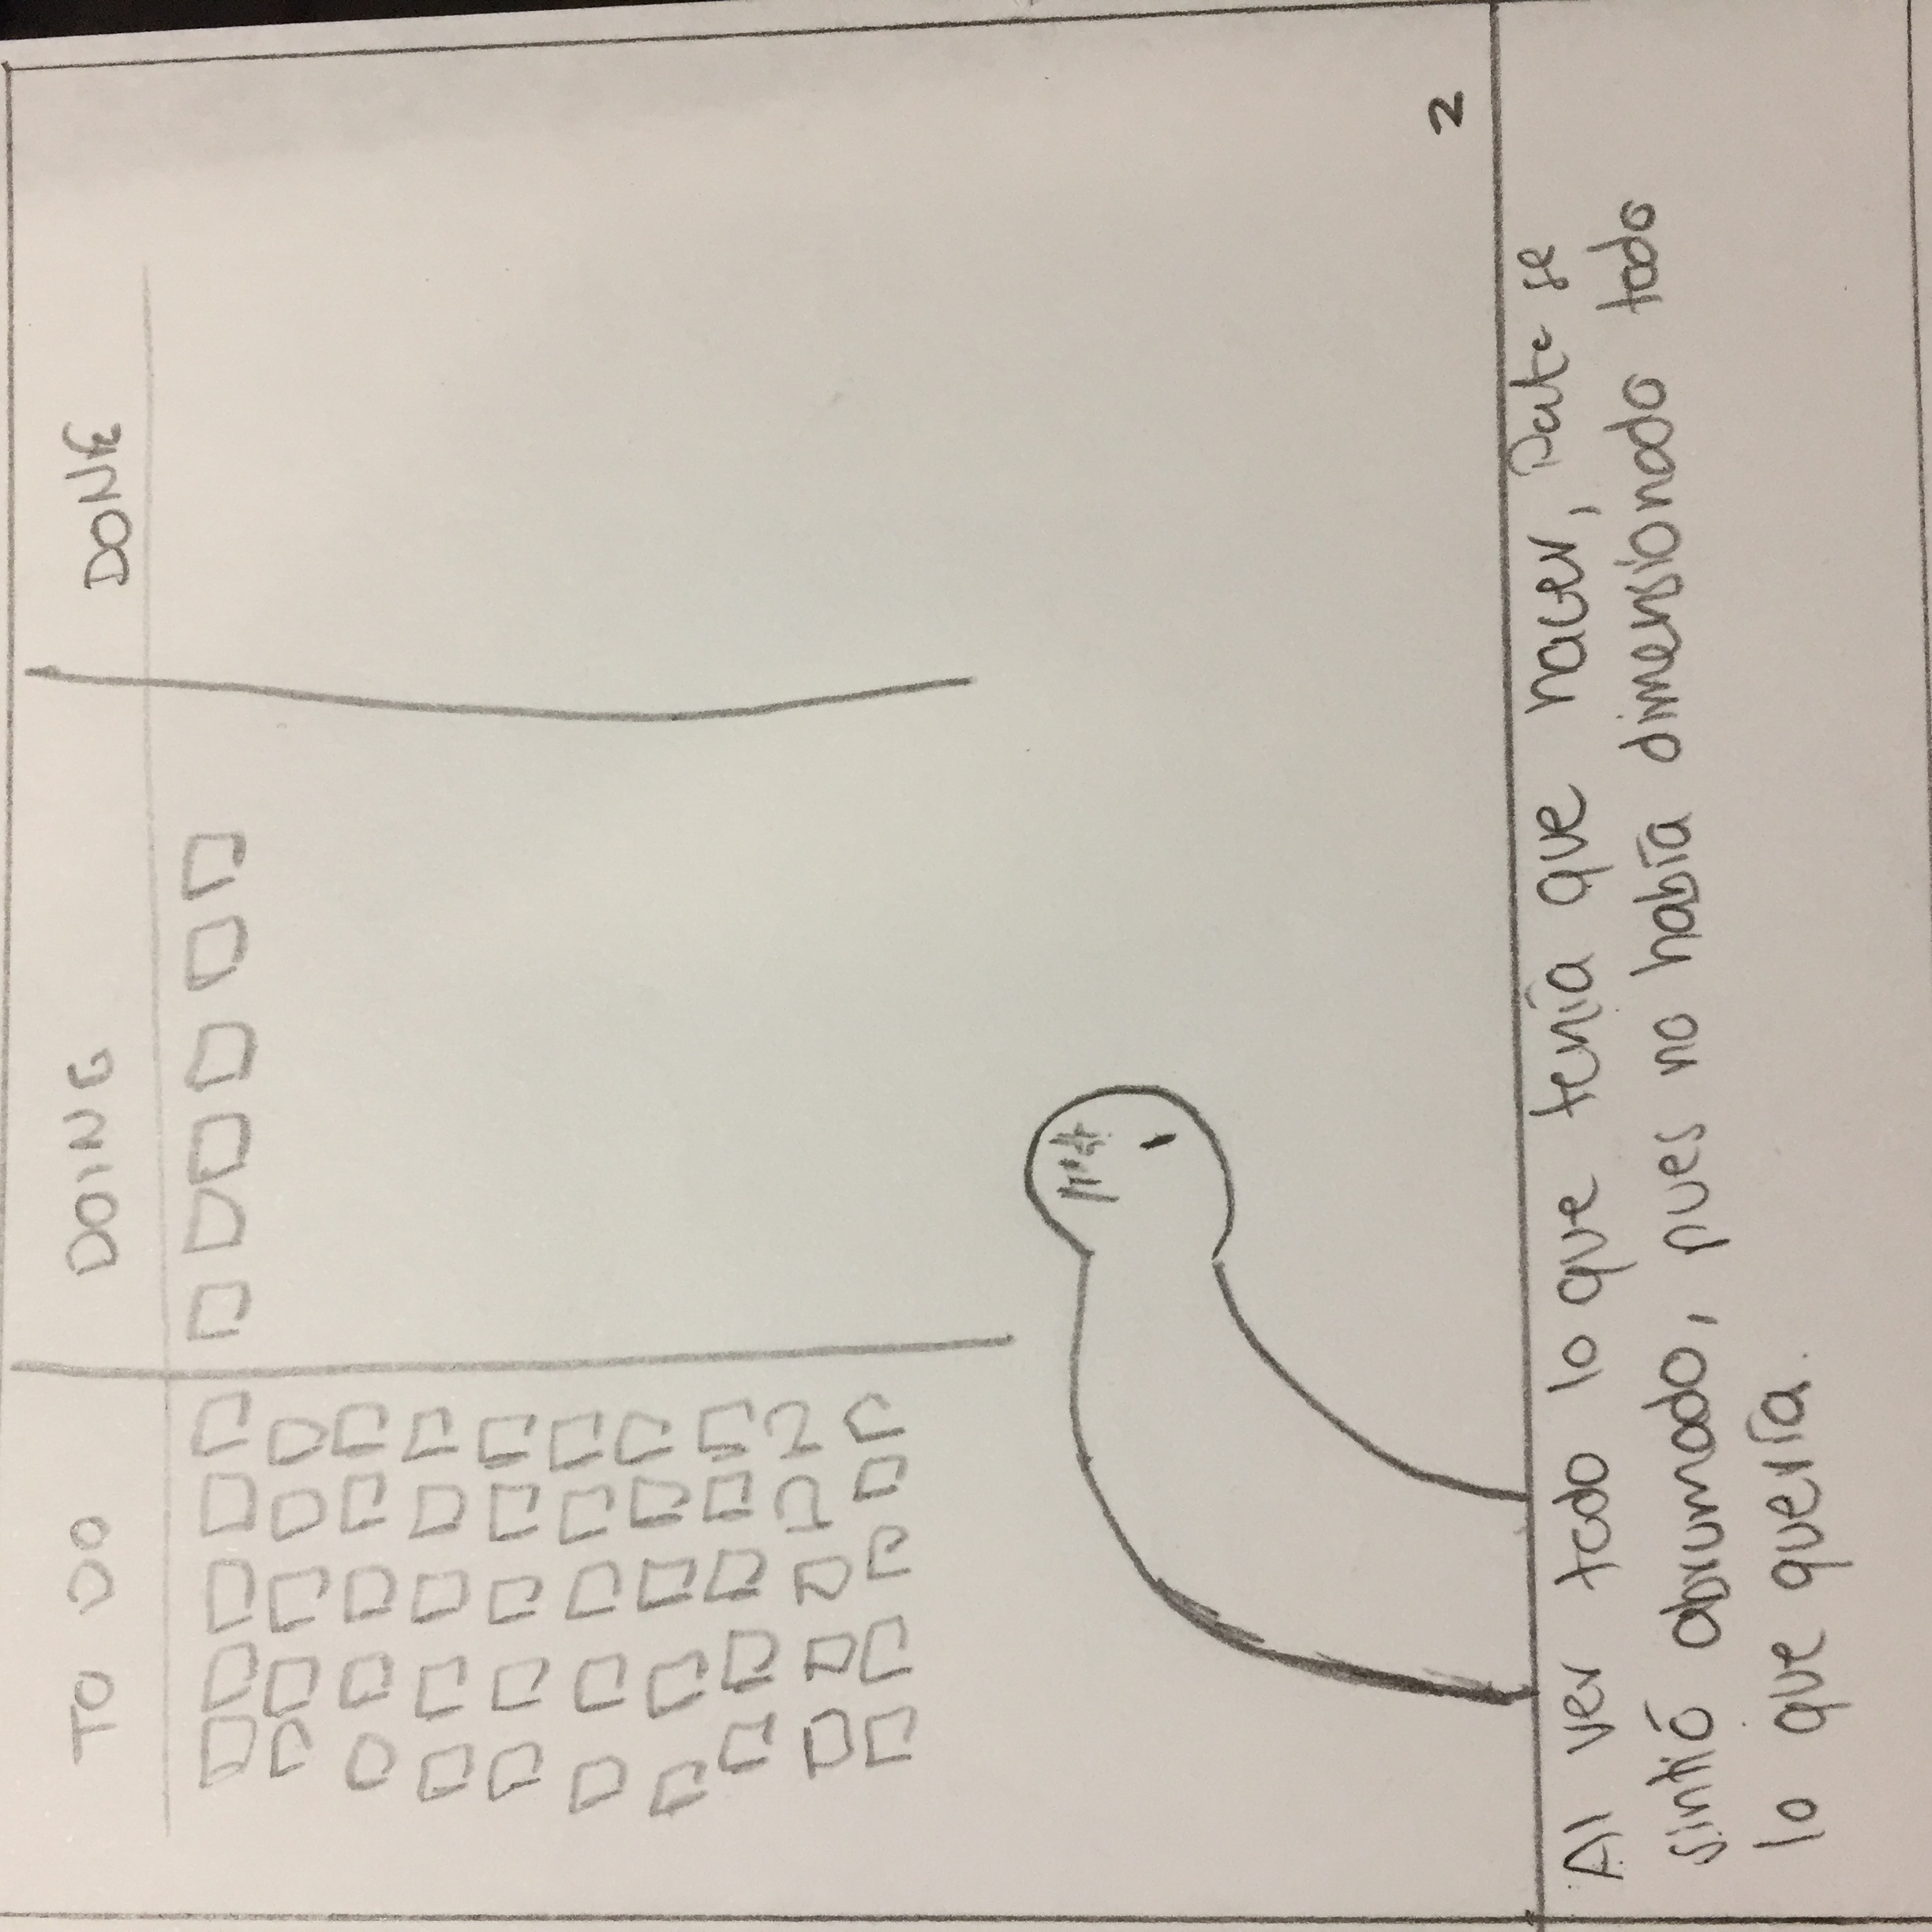 TO DO DOING DONE
2
Al ver todo lo que tenía que hacer, Pate se
sintió abrumado, pues no había dimensionado todo
lo que quería.